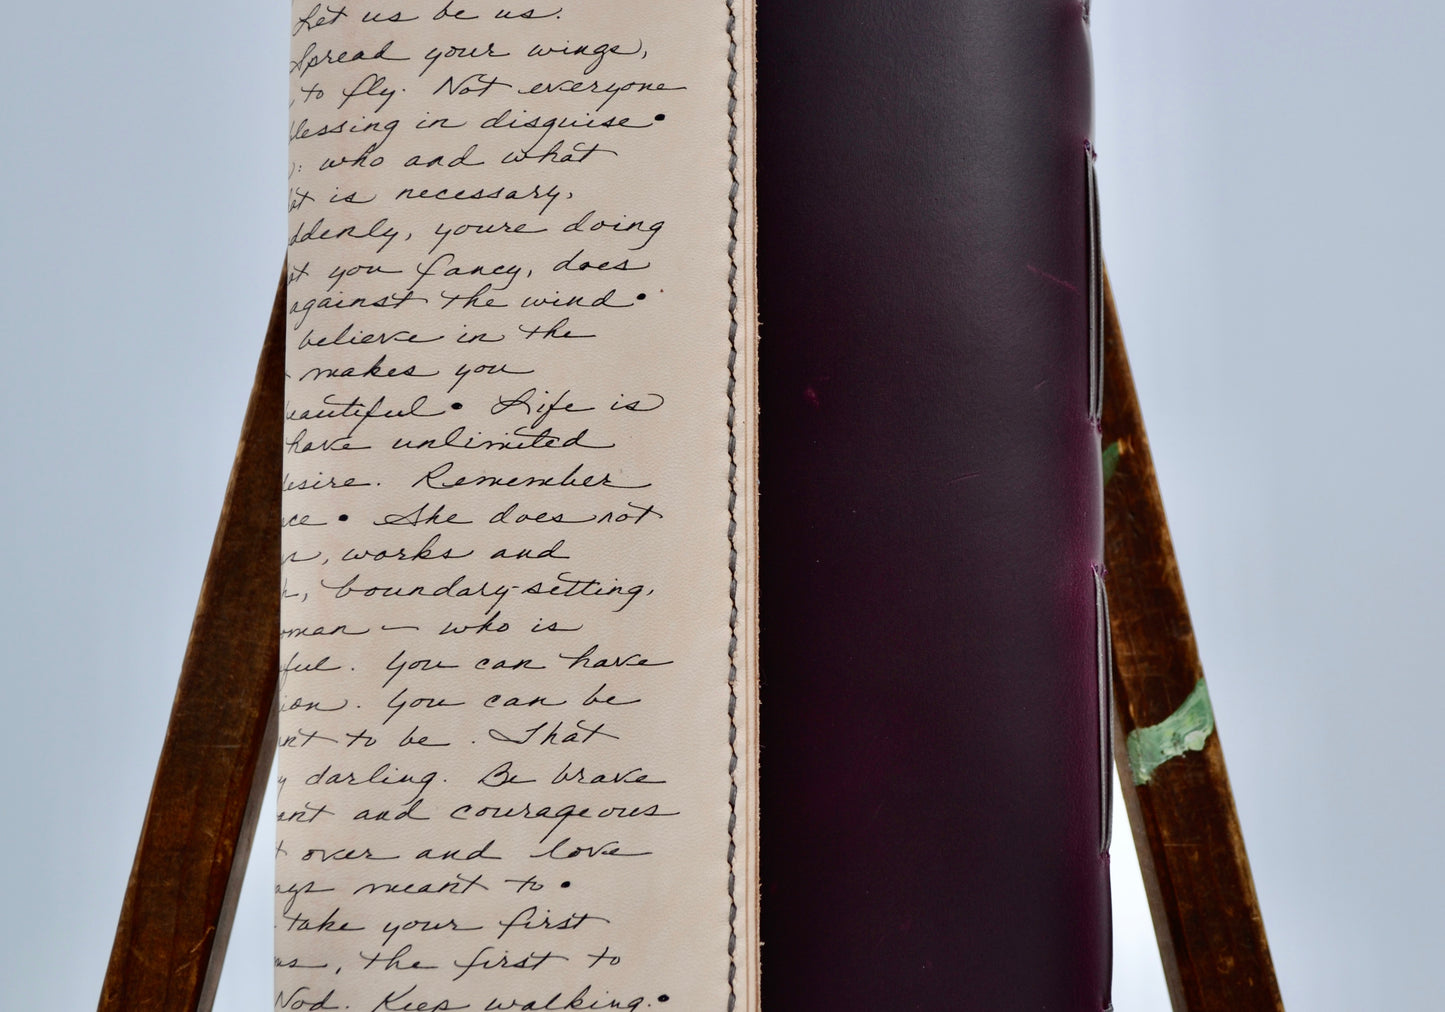 Let us be us.
Spread your wings,
to fly. Not everyone
lessing in disguise •
: who and what
at is necessary,
ddenly, youre doing
at you fancy, does
against the wind •
believe in the
makes you
eautiful • Life is
have unlimited
desire. Remember
ce • She does not
, works and
h, boundary-setting,
oman — who is
ful. You can have
ion. You can be
nt to be. That
y darling. Be brave
ant and courageous
t over and love
ays meant to •
take your first
ms, the first to
Nod. Keep walking. •